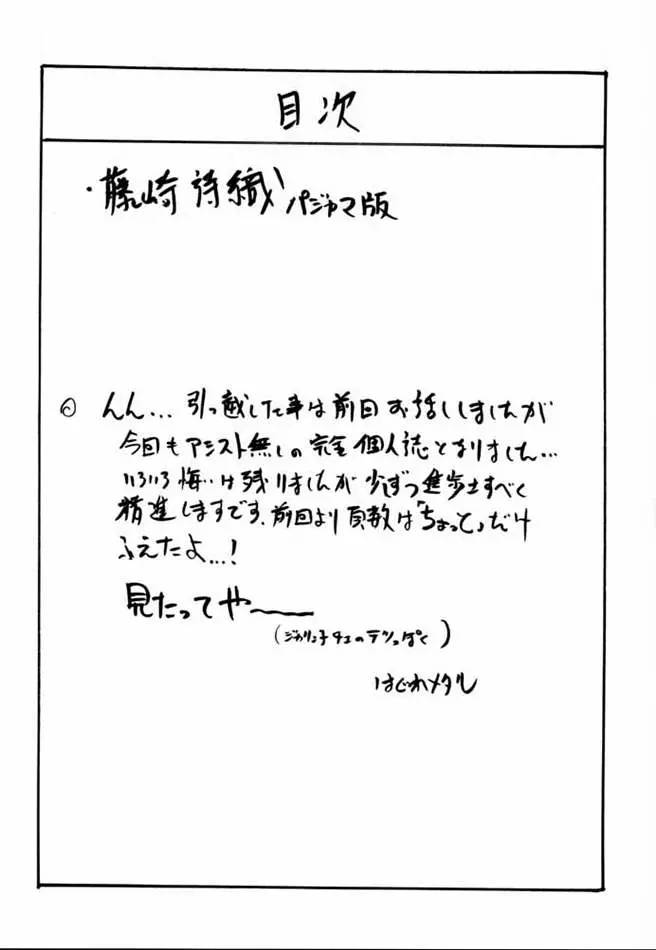 目次
・藤崎詩織 パジャマ版
◎ んん… 引っ越しした事は前回お話ししましたが
今回もアシスト無しの完全個人誌となりました…
いろいろ悔いは残りましたが少しずつ進歩すべく
精進しますです、前回より頁数は「ちょっと」だけ
ふえたよ…!
見たってや〜
(ジャリン子チエのテツっぽく)
はぐれメタル